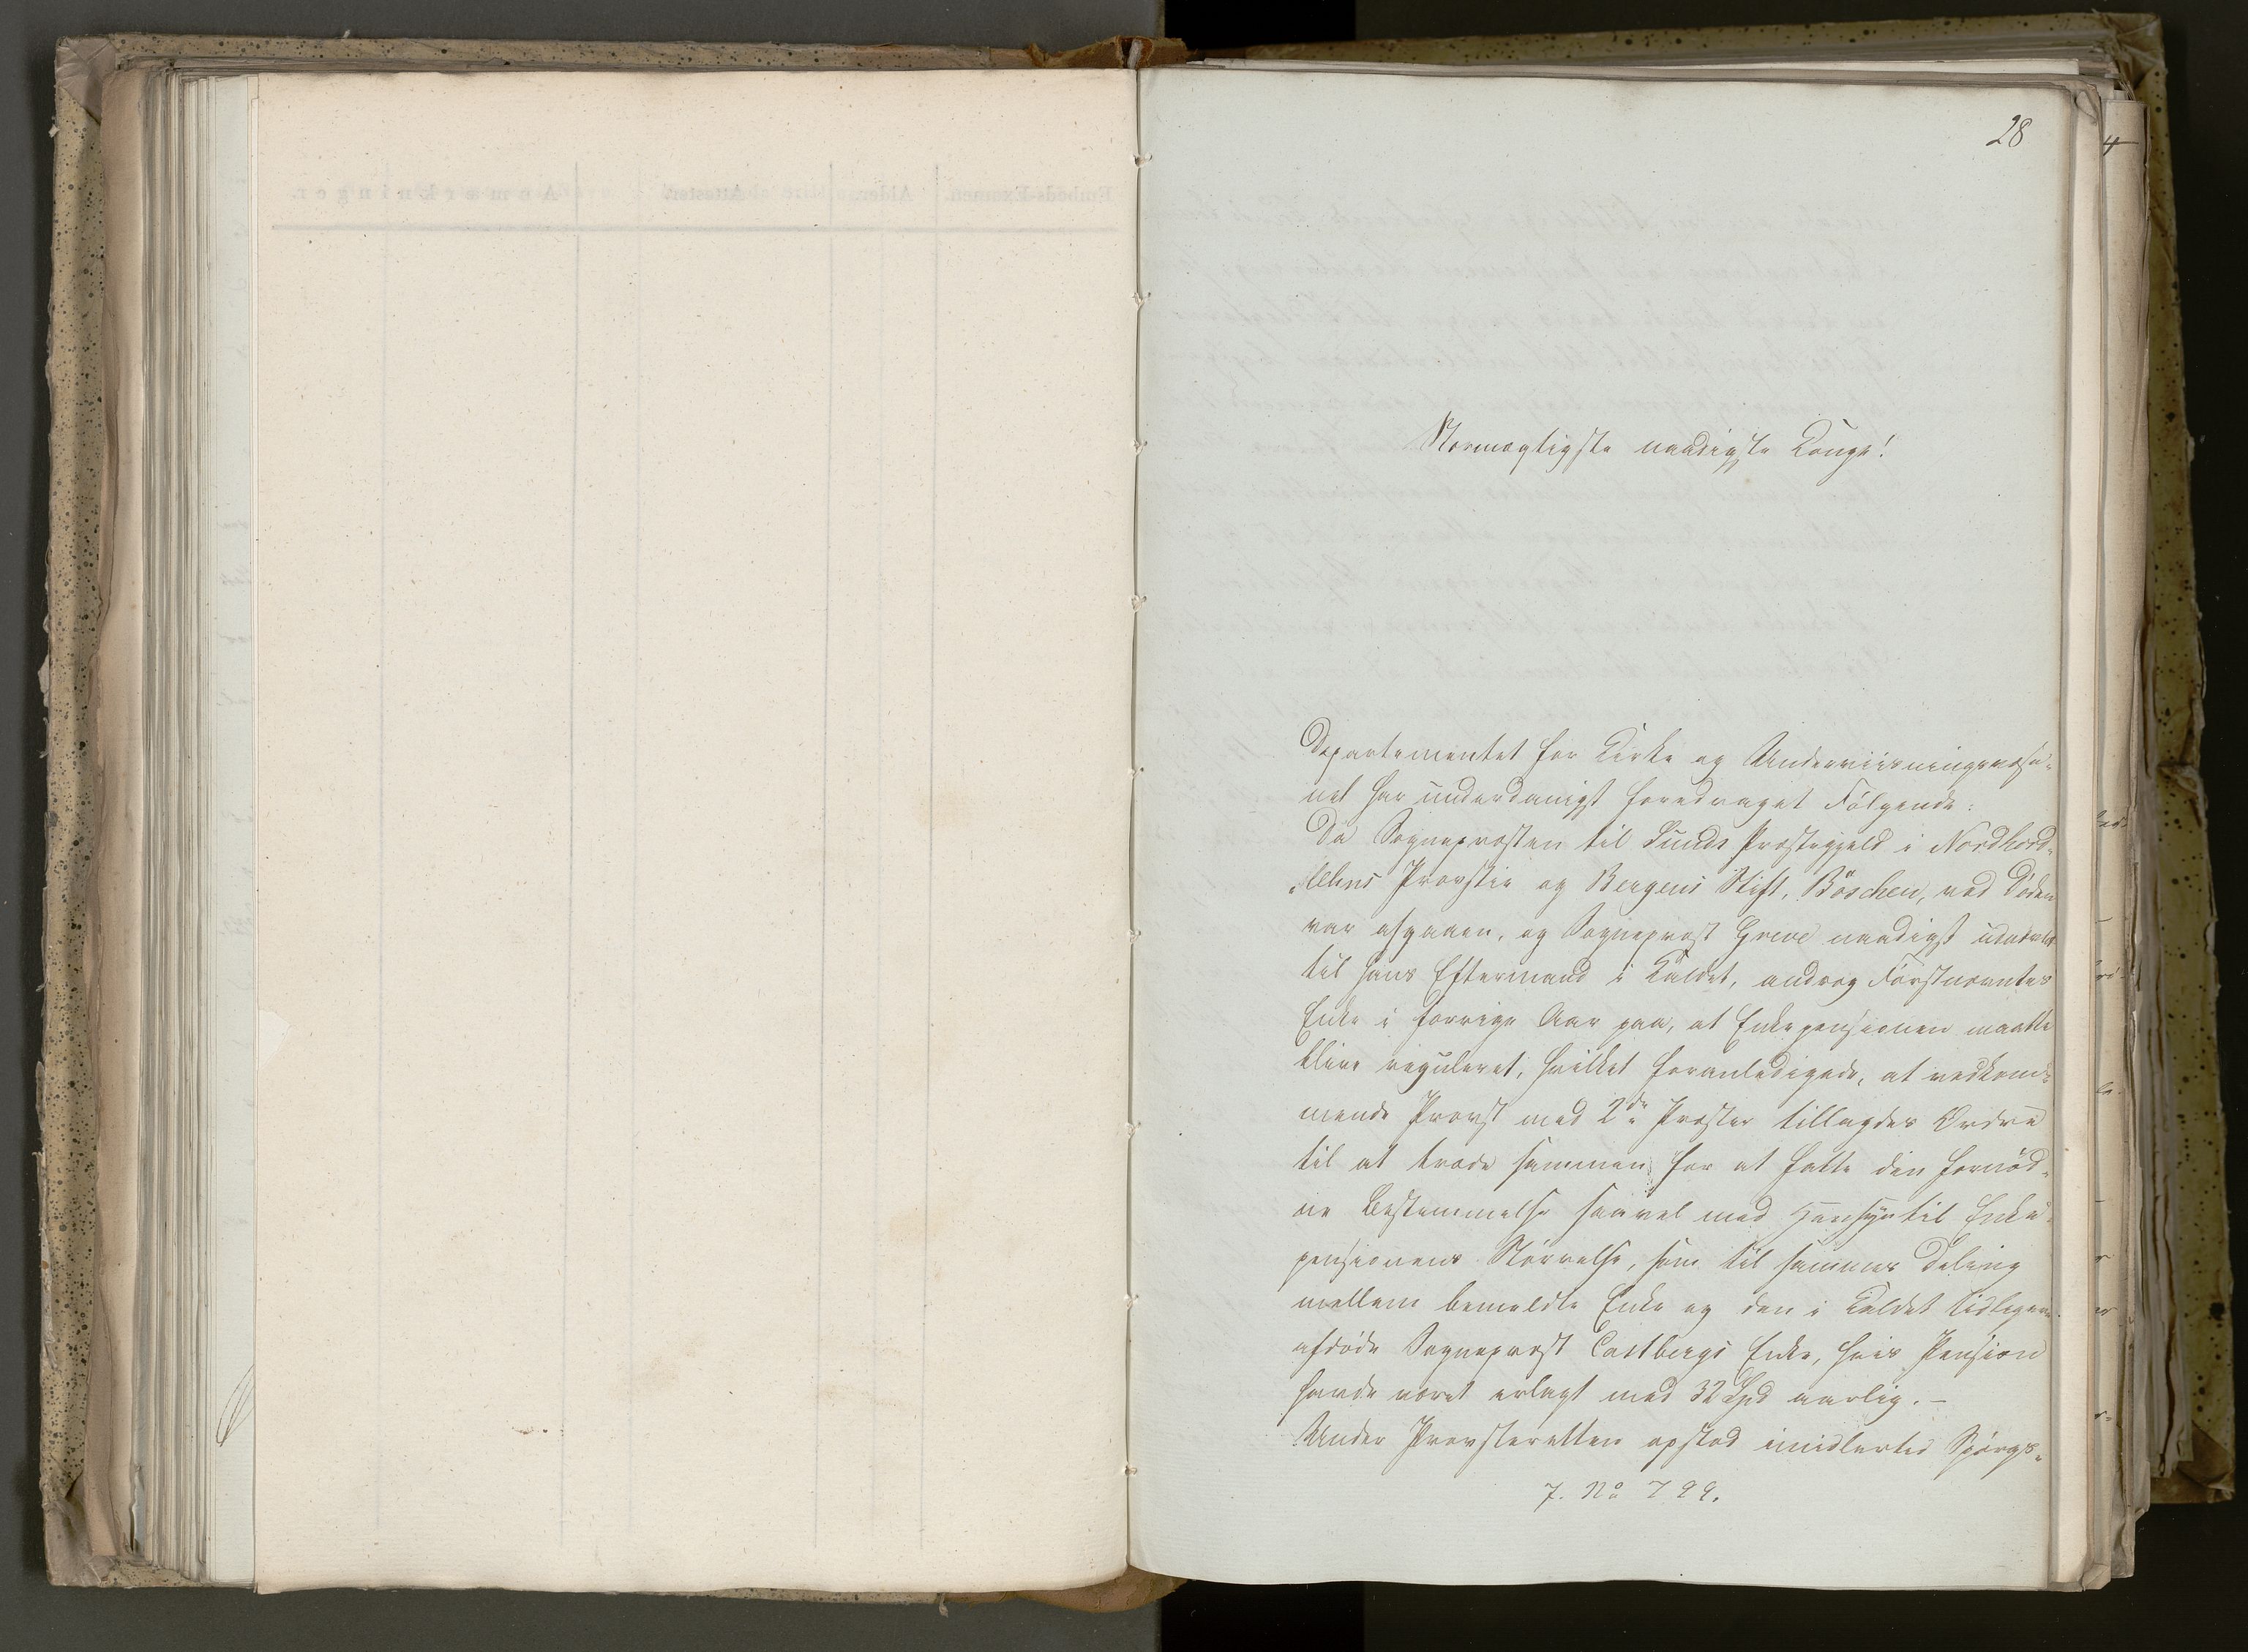 28
Stormægtigste naadigste Konge!
Departementet for Kirke og Underviisningsvæse-
net har underdanigst foredraget Følgende:
Da Sognepræsten til Sunds Præstegjeld i Nordhord-
lehns Provstie og Bergens Stift, Böschen, ved Døden
var afgaaen, og Sognepræst Greve naadigst udnævnt
til hans Eftermand i Kaldet, androg Førstnævntes
Enke i forrige Aar paa, at Enkepensionen maatte
blive reguleret, hvilket foranledigede, at vedkom-
mende Provst med 2de Præster tillagdes Ordre
til at træde sammen for at fatte den fornød-
ne Bestemmelse saavel med Hensyn til Enke-
pensionens Størrelse, som til sammes Deling
mellem bemeldte Enke og den i Kaldet tidligere
afdøde Sognepræst Castbergs Enke, hvis Pension
havde været erlagt med 32 Spd aarlig. -
Under Provsteretten opstod imidlertid Spörgs-
7. No 799.